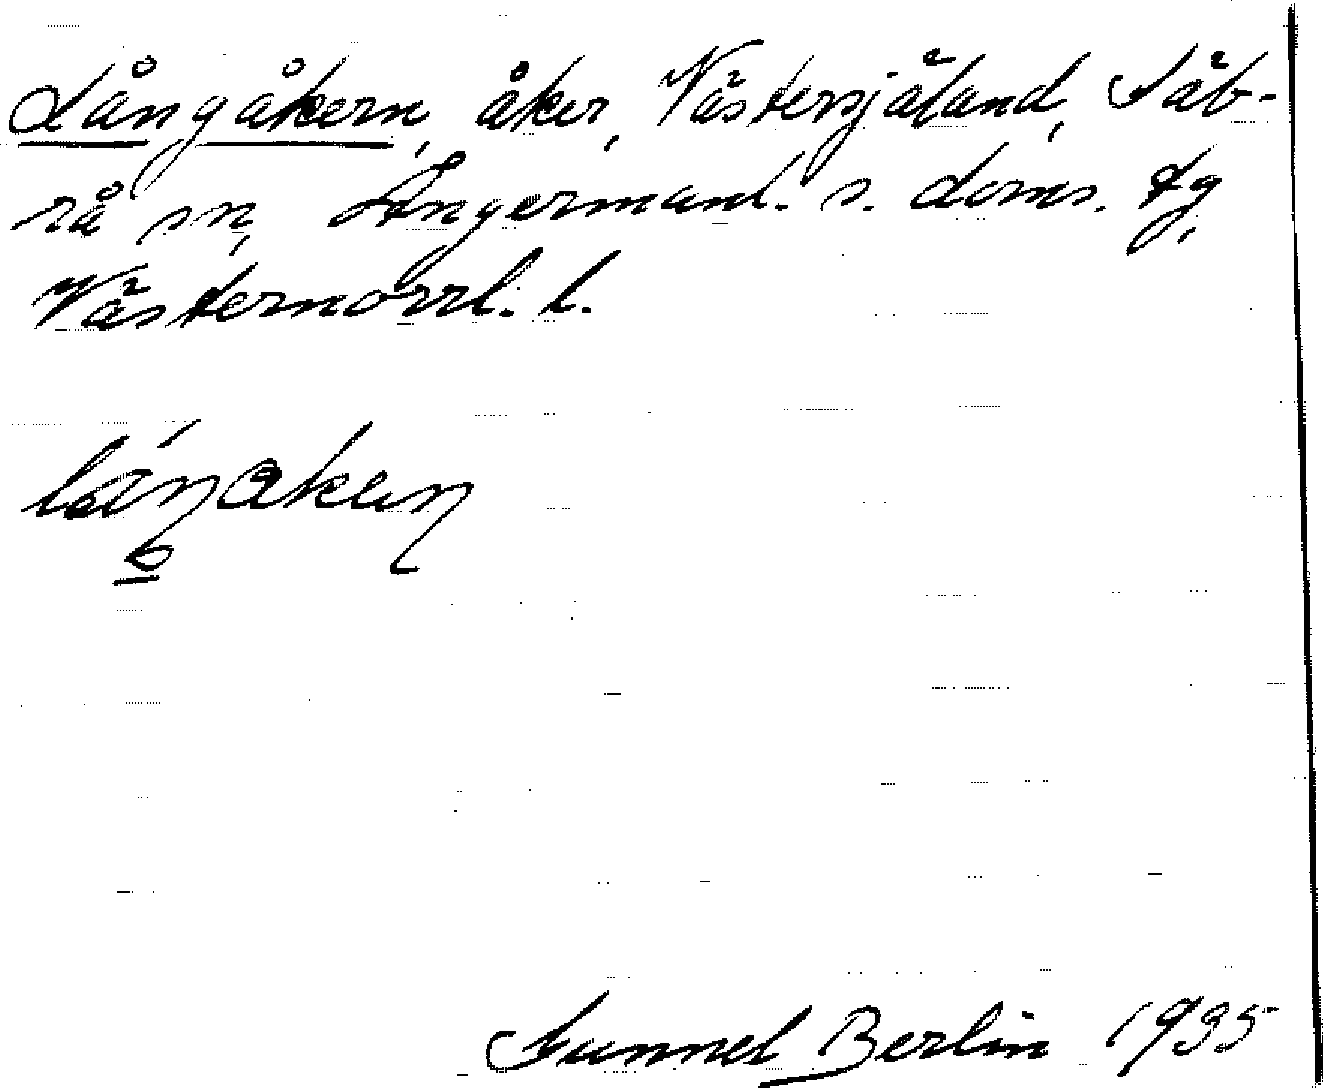 Långåkern, åker, Västersjäland, Säb-
rå sn, Ångermanl. s. doms. tg,
Västernorrl. l.
Gunnel Berlin 1935